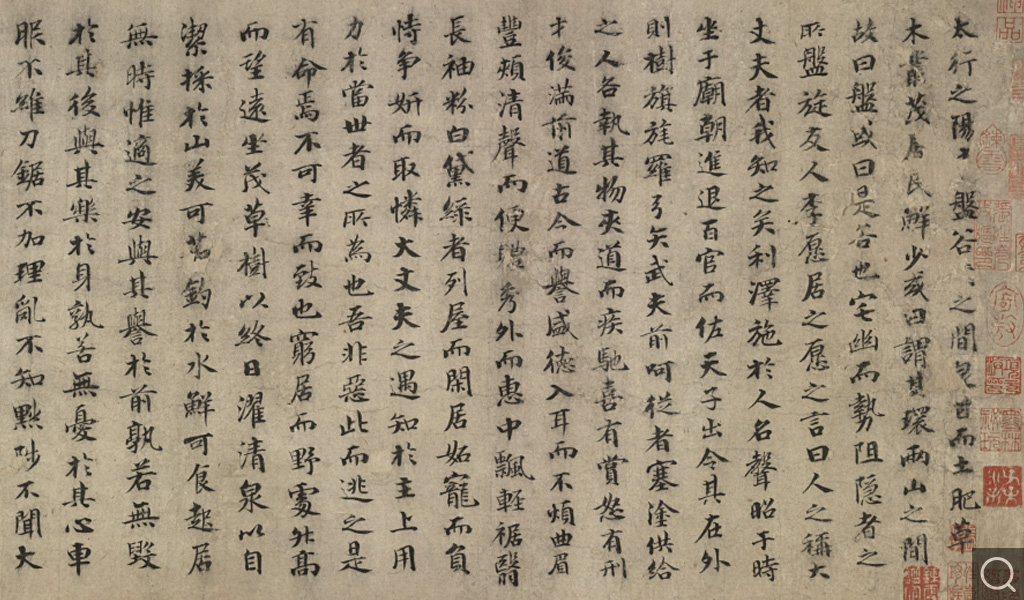 太行之陽盤谷〻之間泉甘而土肥草
木藂茂居民鮮少或曰謂其環兩山之間
故曰盤或曰是谷也宅幽而勢阻隱者之
所盤旋友人李愿居之愿之言曰人之稱大
丈夫者我知之矣利澤施於人名聲昭于時
坐于廟朝進退百官而佐天子出令其在外
則樹旗旄羅弓矢武夫前呵從者塞塗供給
之人各執其物夾道而疾馳喜有賞怒有刑
才俊滿前道古今而譽盛德入耳而不煩曲眉
豐頰清聲而便體秀外而惠中飄輕裾翳
長袖粉白黛綠者列屋而閑居妬寵而負
恃争妍而取憐大丈夫之遇知於主上用
力於當世者之所為也吾非惡此而逃之是
有命焉不可幸而致也窮居而野處升高
而望遠坐茂草樹以終日濯清泉以自
潔採於山美可茹釣於水鮮可食起居
無時惟適之安與其譽於前孰若無毀
於其後與其樂於身孰若無憂於其心車
服不維刀鋸不加理亂不知黜陟不聞大